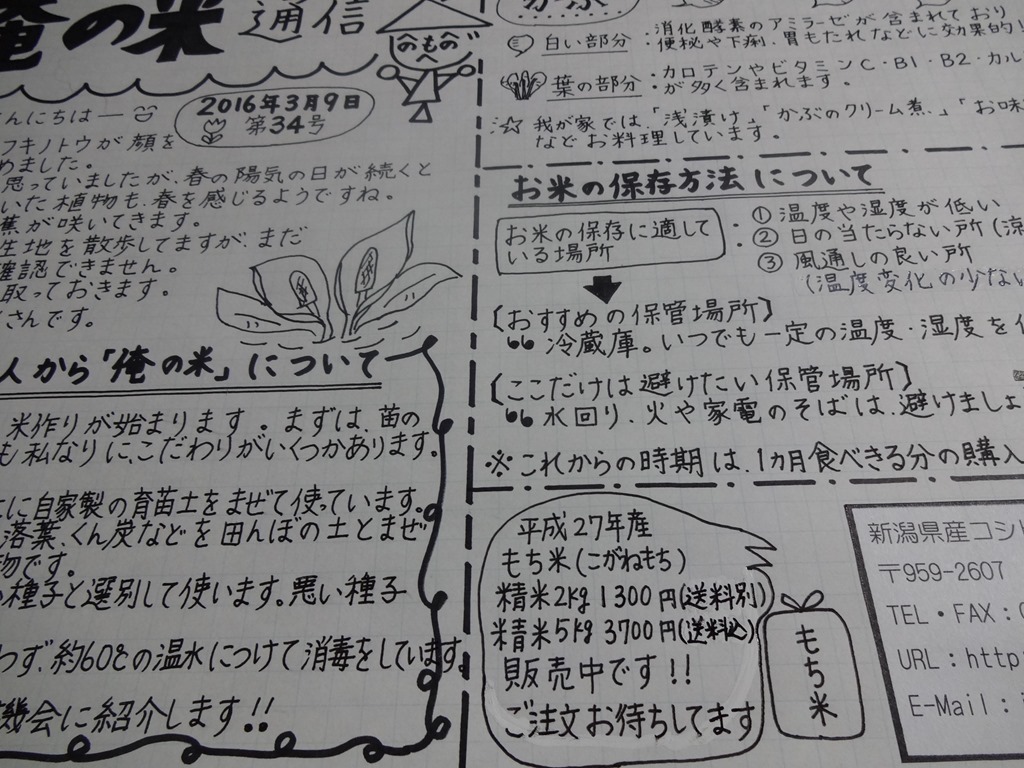 俺の米 通信
へのもへ゛
2016年3月9日
第34号
んにちは
フキノトウが顔を
めました。
思っていましたが、春の陽気の日が続くと
いた植物も、春を感じるようですね。
蕉が咲いてきます。
生地を散歩してますが、まだ
確認できません。
取っておきます。
さんです。
人から「俺の米」について
米作りが始まります。まずは、苗の
も私なりに、こだわりがいくつかあります。
に自家製の育苗土をまぜて使っています。
落葉、くん炭などを田んぼの土とまぜ
物です。
種子と選別して使います。悪い種子
わず、約60℃の温水につけて消毒をしています。
機会に紹介します!!
白い部分
・消化酵素のアミラーゼが含まれており
・便秘や下痢、胃もたれなどに効果的!
葉の部分
・カロテンやビタミンC・B1・B2・カル
が多く含まれます。
☆ 我が家では、「浅漬け」「かぶのクリーム煮」「お味
などお料理しています。
お米の保存方法について
お米の保存に適して
いる場所
:
① 温度や湿度が低い
② 日の当たらない所(涼
③ 風通しの良い所
(温度変化の少ない
【おすすめの保管場所】
冷蔵庫。いつでも一定の温度・湿度を
【ここだけは避けたい保管場所】
水回り、火や家電のそばは、避けましょ
※これからの時期は、1ヵ月食べきる分の購入
平成27年産
もち米(こがねもち)
精米2kg 1300円(送料別)
精米5kg 3700円(送料込)
販売中です!!
ご注文お待ちしてます
もち米
新潟県産コシ
〒959-2607
TEL・FAX:
URL:http
E-Mail: